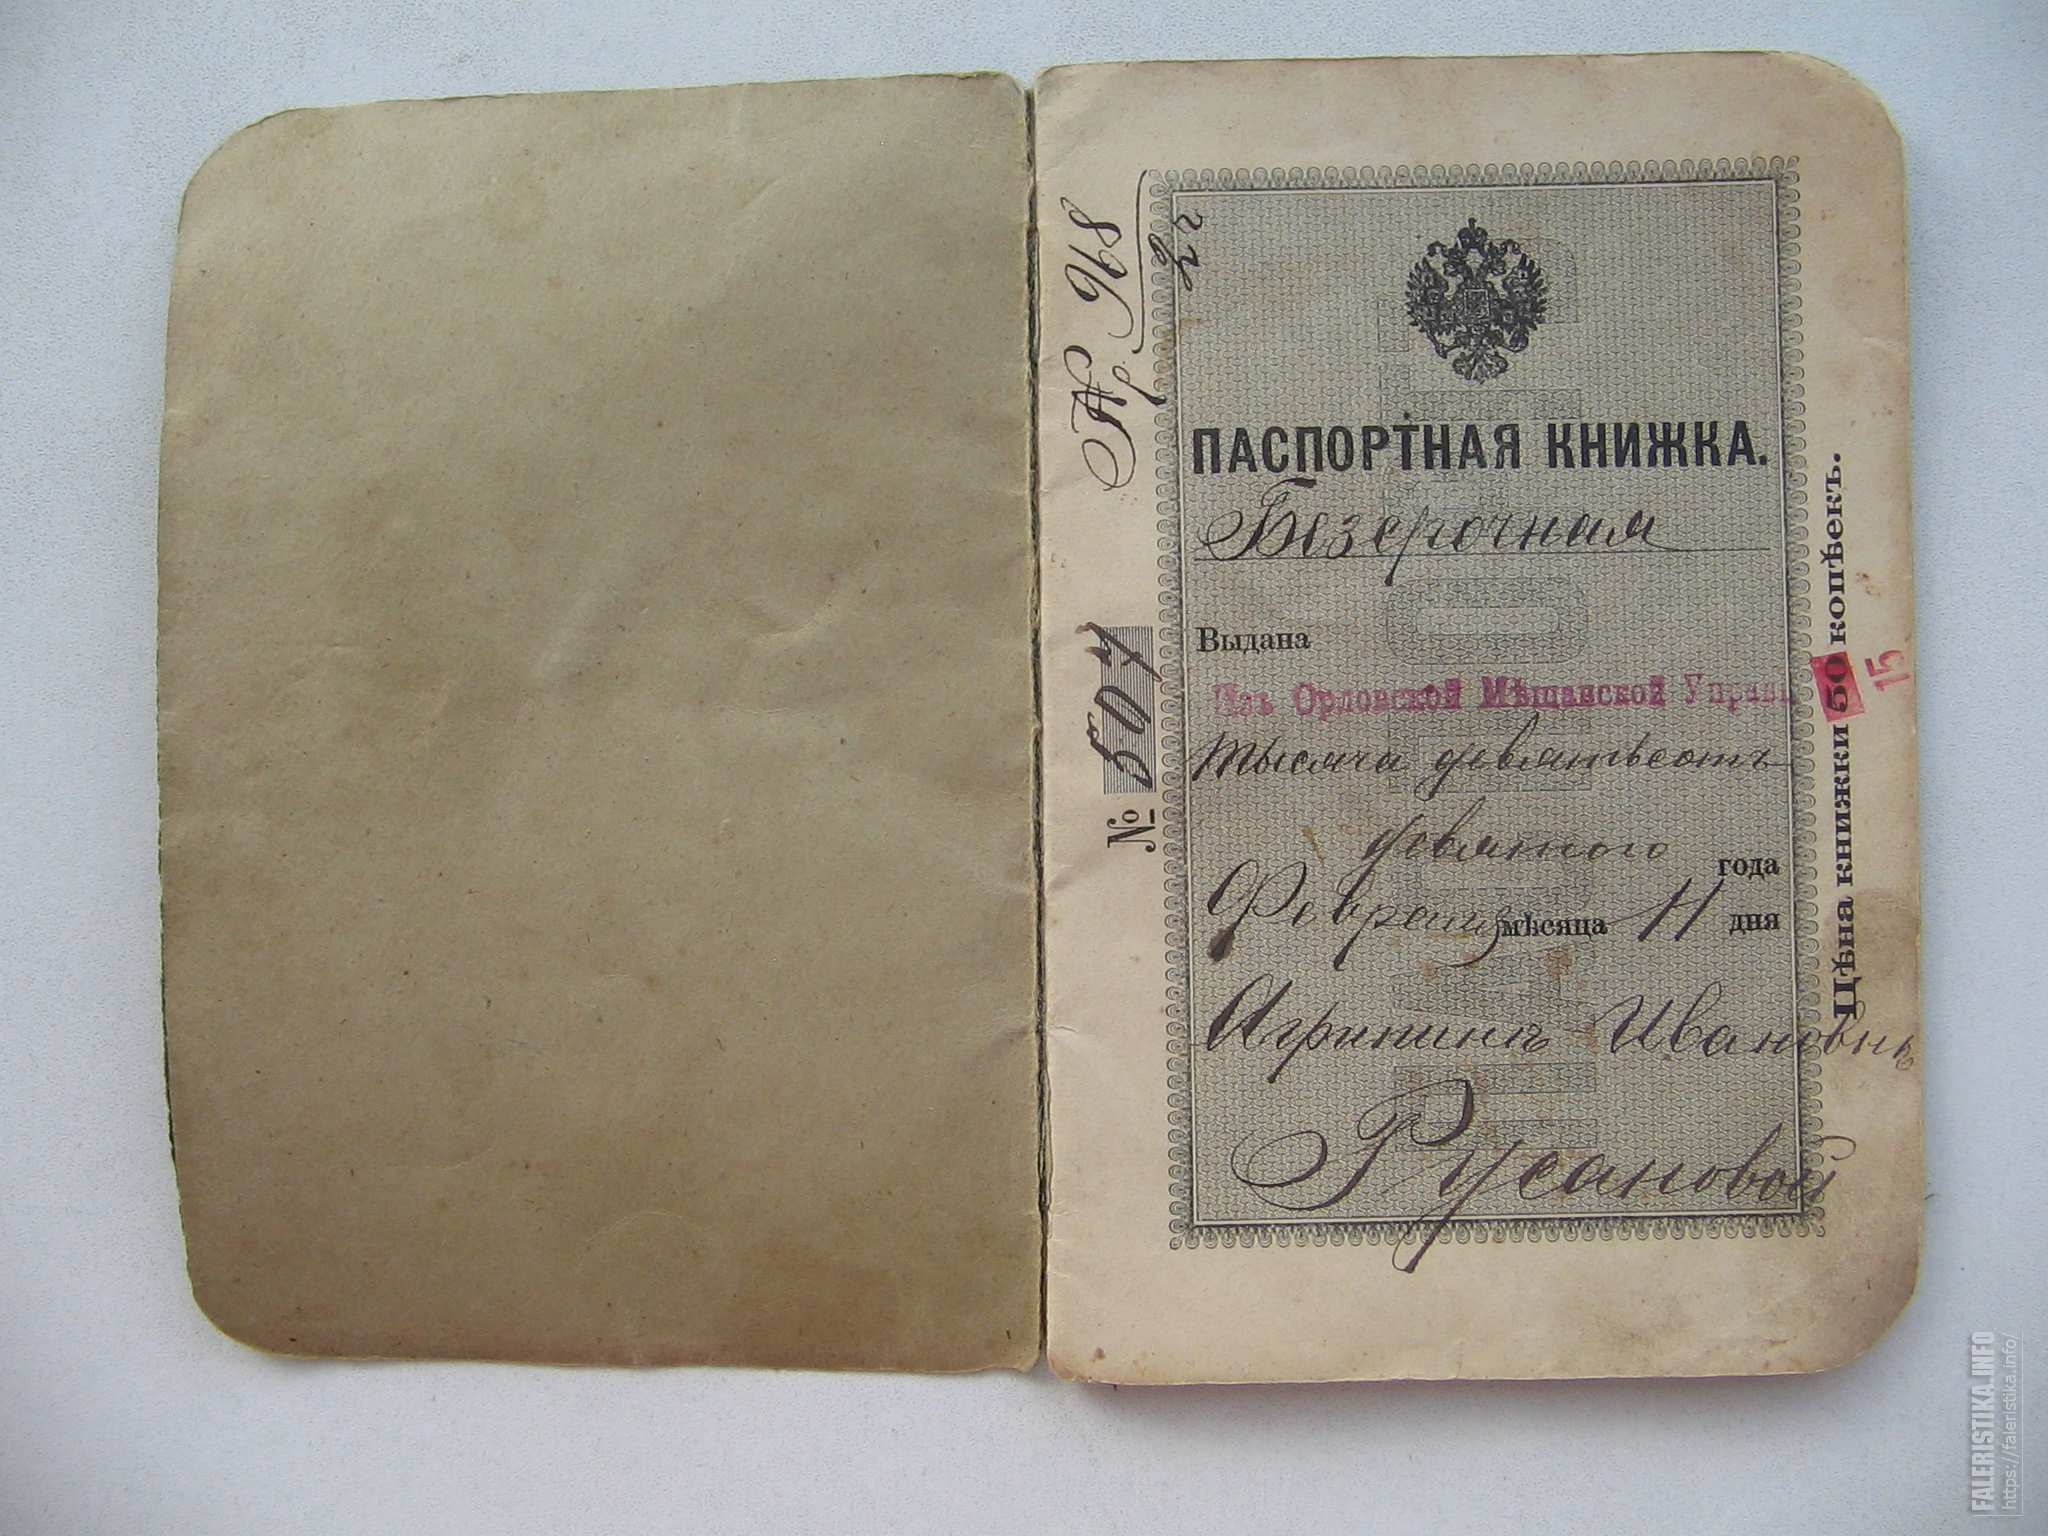 Пр. 968
№ 507
ПАСПОРТНАЯ КНИЖКА.
Безсрочная
Выдана
Изъ Орловской Мѣщанской Управы
Тысяча девятьсотъ
девятого года
Февраля мѣсяца 11 дня
Агрипинѣ Ивановнѣ
Русановой
Цѣна книжки 50 копѣекъ.
15
FALERISTIKA.INFO
https://faleristika.info/